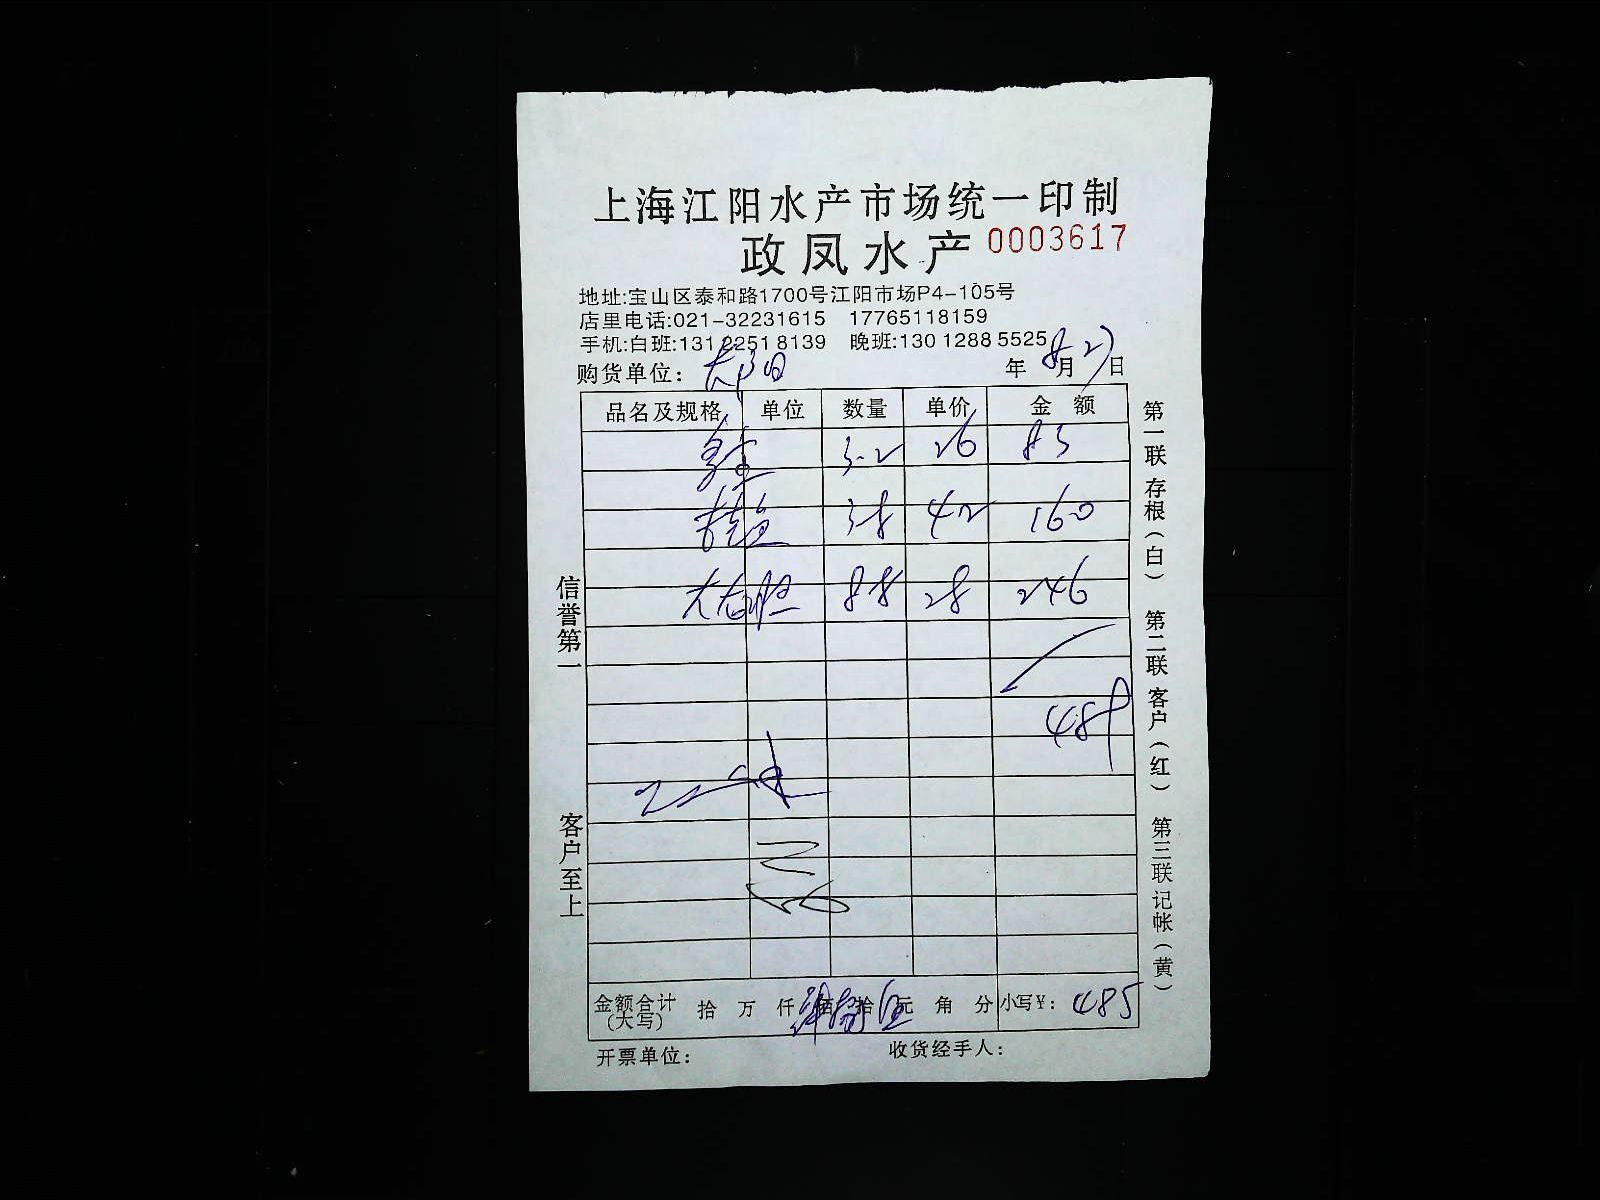 上海江阳水产市场统一印制
政凤水产 0003617
地址:宝山区泰和路1700号江阳市场P4-105号
店里电话:021-32231615 17765118159
手机:白班:131 2251 8139 晚班:130 1288 5525
购货单位: 年 8月 27日
品名及规格 单位 数量 单价 金额
3.2 26 83
38 42 160
88 28 246
489
金额合计(大写) 拾 万 仟 佰 拾 元 角 分 小写¥: 485
开票单位: 收货经手人:
信誉第一 客户至上
第一联存根(白) 第二联客户(红) 第三联记帐(黄)